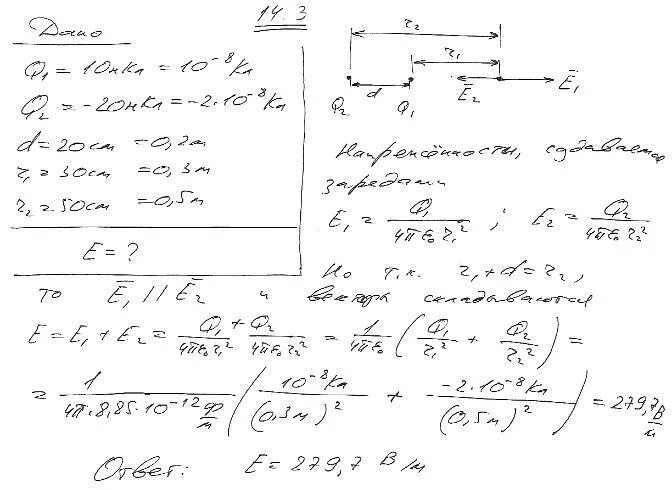 14.3
Дано
Q₁ = 10нКл = 10⁻⁸Кл
Q₂ = -20нКл = -2·10⁻⁸Кл
d = 20см = 0,2м
r₁ = 30см = 0,3м
r₂ = 50см = 0,5м
E = ?
r₂
r₁
d
Q₂ Q₁ E̅₂ E̅₁
Напряжённости, создаваемые
зарядами
E₁ = Q₁/(4πε₀r₁²) ; E₂ = Q₂/(4πε₀r₂²)
Но т.к. r₁ + d = r₂,
то E̅₁ // E̅₂ и вектора складываются
E = E₁ + E₂ = Q₁/(4πε₀r₁²) + Q₂/(4πε₀r₂²) = 1/(4πε₀) (Q₁/r₁² + Q₂/r₂²) =
= 1/(4π·8,85·10⁻¹² Ф/м) (10⁻⁸Кл/(0,3м)² + -2·10⁻⁸Кл/(0,5м)²) = 279,7 В/м
Ответ: E = 279,7 В/м